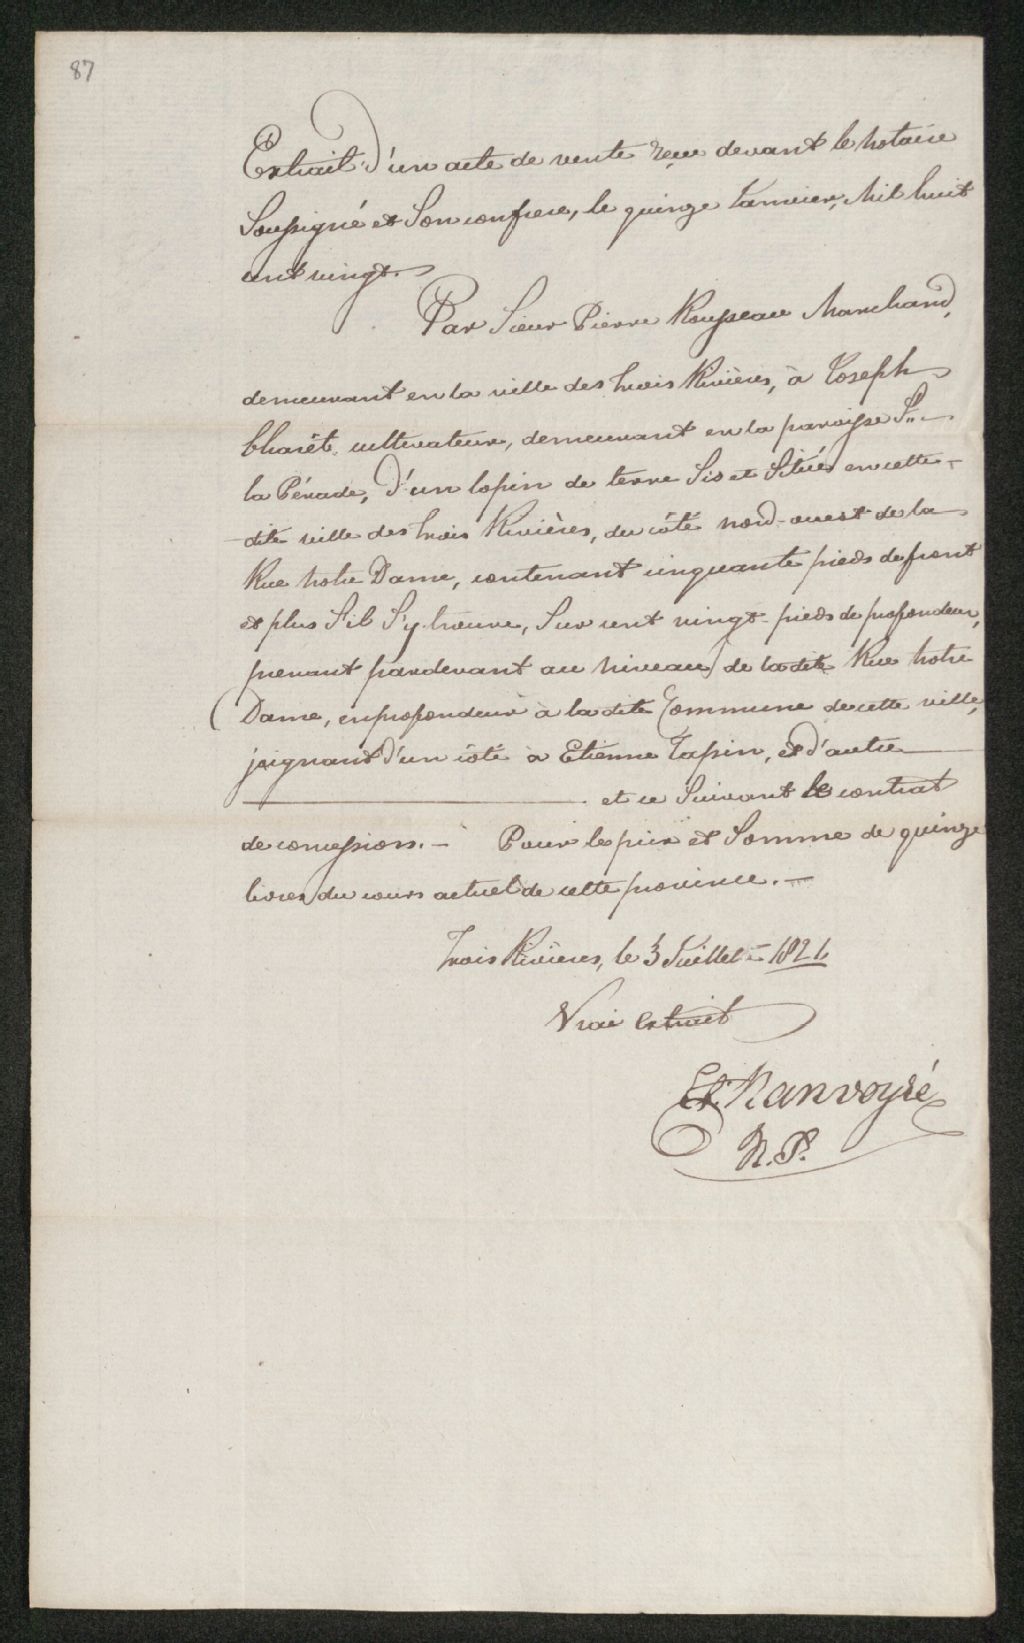 87
Extrait d'un acte de vente reçu devant le notaire
Soussigné et Son confrere, le quinze Janvier, Mil huit
cent vingt.
Par Sieur Pierre Rousseau Marchand,
demeurant en la ville des trois Rivières, à Joseph
Charêt, cultivateur, demeurant en la paroisse Ste.
la Pérade, d'un lopin de terre Sis et Situé en cette
dite ville des trois Rivières, du côté nord-ouest de la
Rue notre Dame, contenant cinquante pieds de front
et plus S'il S'y trouve, Sur cent vingt pieds de profondeur,
prenant pardevant au niveau de ladite Rue notre
Dame, en profondeur à la dite Commune de cette ville,
joignant d'un côté à Etienne Tapin, et d'autre
et ce Suivant le contrat
de concession. - Pour le prix et Somme de quinze
livres du cours actuel de cette province. -
Trois Rivières, le 3 Juillet - 1821.
Vrai extrait
Et. Ranvoyzé
N. P.